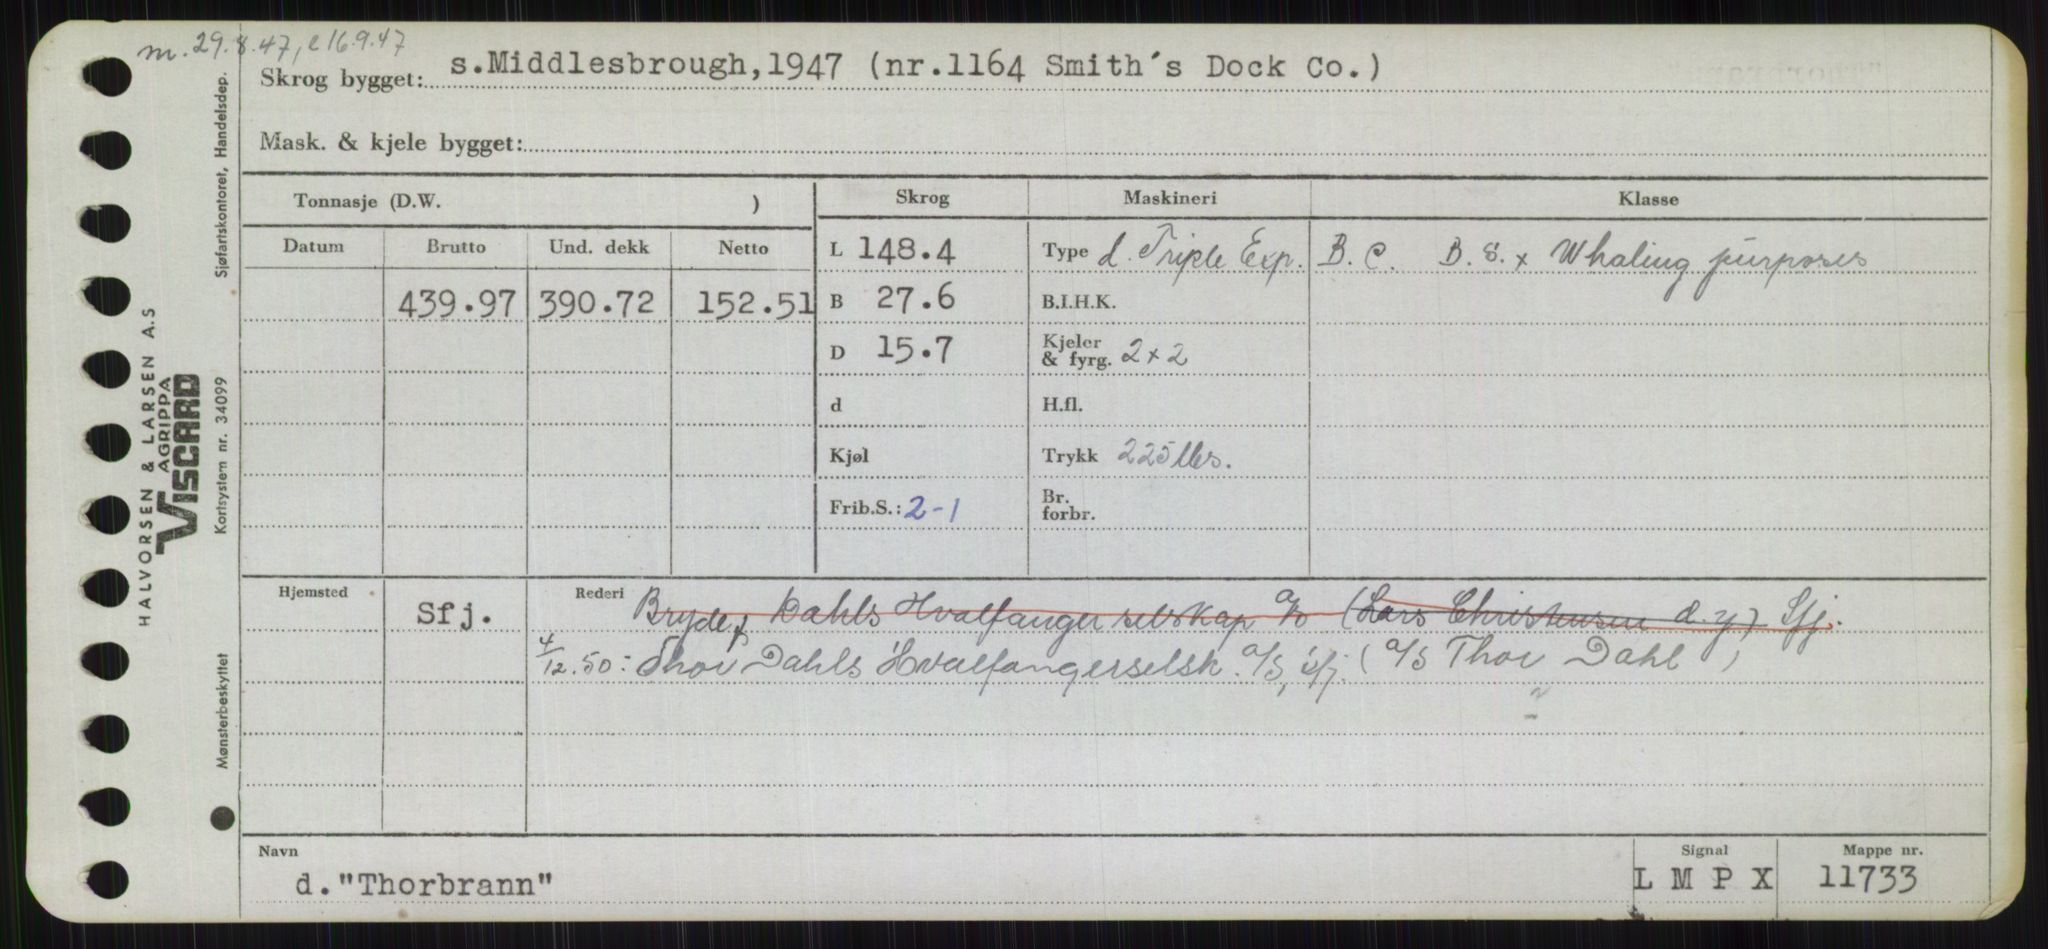 m. 29.8.47, e 16.9.47
Skrog bygget: s.Middlesbrough,1947 (nr.1164 Smith´s Dock Co.)
Mask. & kjele bygget:
Tonnasje (D.W. )
Skrog Maskineri Klasse
Datum Brutto Und. dekk Netto
L 148.4 Type d. Triple Exp. B. C. B. S. x Whaling purposes
439.97 390.72 152.51 B 27.6 B.I.H.K.
D 15.7 Kjeler & fyrg. 2x2
d H.fl.
Kjøl Trykk 225 lbs.
Frib.S.: 2-1 Br. forbr.
Hjemsted Sfj. Rederi Bryde & Dahls Hvalfangerselskap a/s (Lars Christensen d.y) Sfj.
4/12.50: Thor Dahls Hvalfangerselsk. a/s, Sfj. (a/s Thor Dahl)
Navn Signal Mappe nr.
d."Thorbrann" L M P X 11733
HALVORSEN & LARSEN A.S
AGRIPPA
VISCARD
Mønsterbeskyttet Kortsystem nr. 34099 Sjøfartskontoret, Handelsdep.